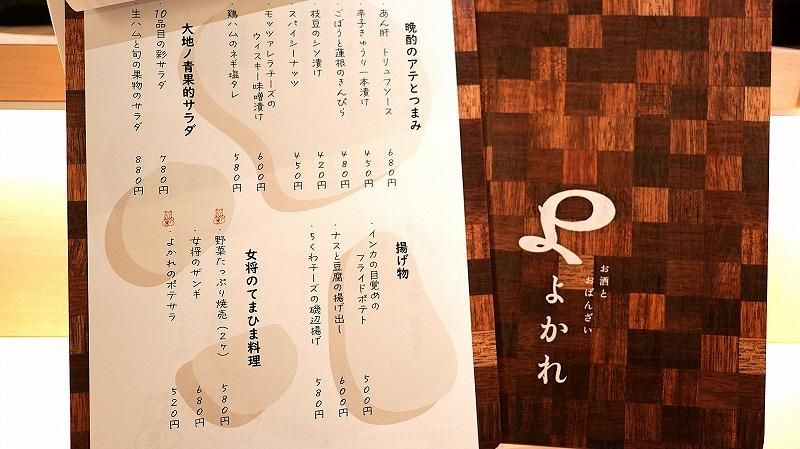 晩酌のアテとつまみ
・あん肝 トリュフソース 680円
・辛子きゅうり一本漬け 450円
・ごぼうと蓮根のきんぴら 480円
・枝豆のシソ漬け 420円
・スパイシーナッツ 450円
・モッツァレラチーズの
ウィスキー味噌漬け 600円
・鶏ハムのネギ塩タレ 580円
大地ノ青果的サラダ
・10品目の彩サラダ 780円
・生ハムと旬の果物のサラダ 880円
揚げ物
・インカの目覚めの
フライドポテト 500円
・ナスと豆腐の揚げ出し 600円
・ちくわチーズの磯辺揚げ 580円
女将のてまひま料理
・野菜たっぷり焼売(2ケ) 580円
・女将のザンギ 680円
・よかれのポテサラ 520円
お酒と
おばんざい
よかれ